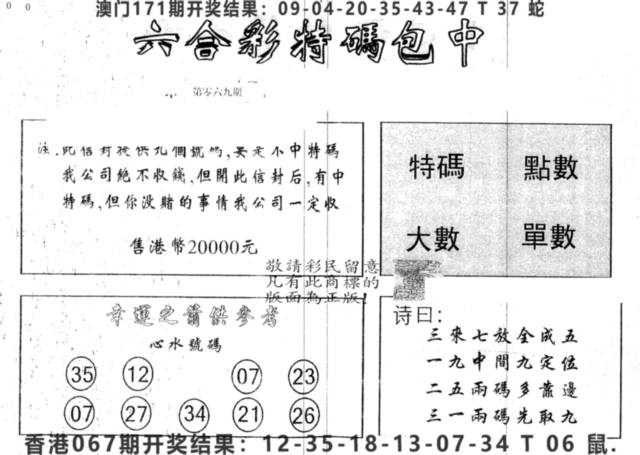 澳门171期开奖结果：09-04-20-35-43-47 T 37 蛇
六合彩特碼包中
第零六九期
注.此信封提供九個號碼,要是不中特碼
我公司絕不收錢,但開此信封后,有中
特碼,但你没賭的事情我公司一定收
售港幣20000元
特碼 點數
大數 單數
敬請彩民留意
凡有此商標的
版面為正版!
幸運之籌供參考
心水號碼
35 12 07 23
07 27 34 21 26
诗曰:
三來七放全成五
一九中間九定位
二五兩碼多靠邊
三一兩碼先取九
香港067期开奖结果：12-35-18-13-07-34 T 06 鼠.